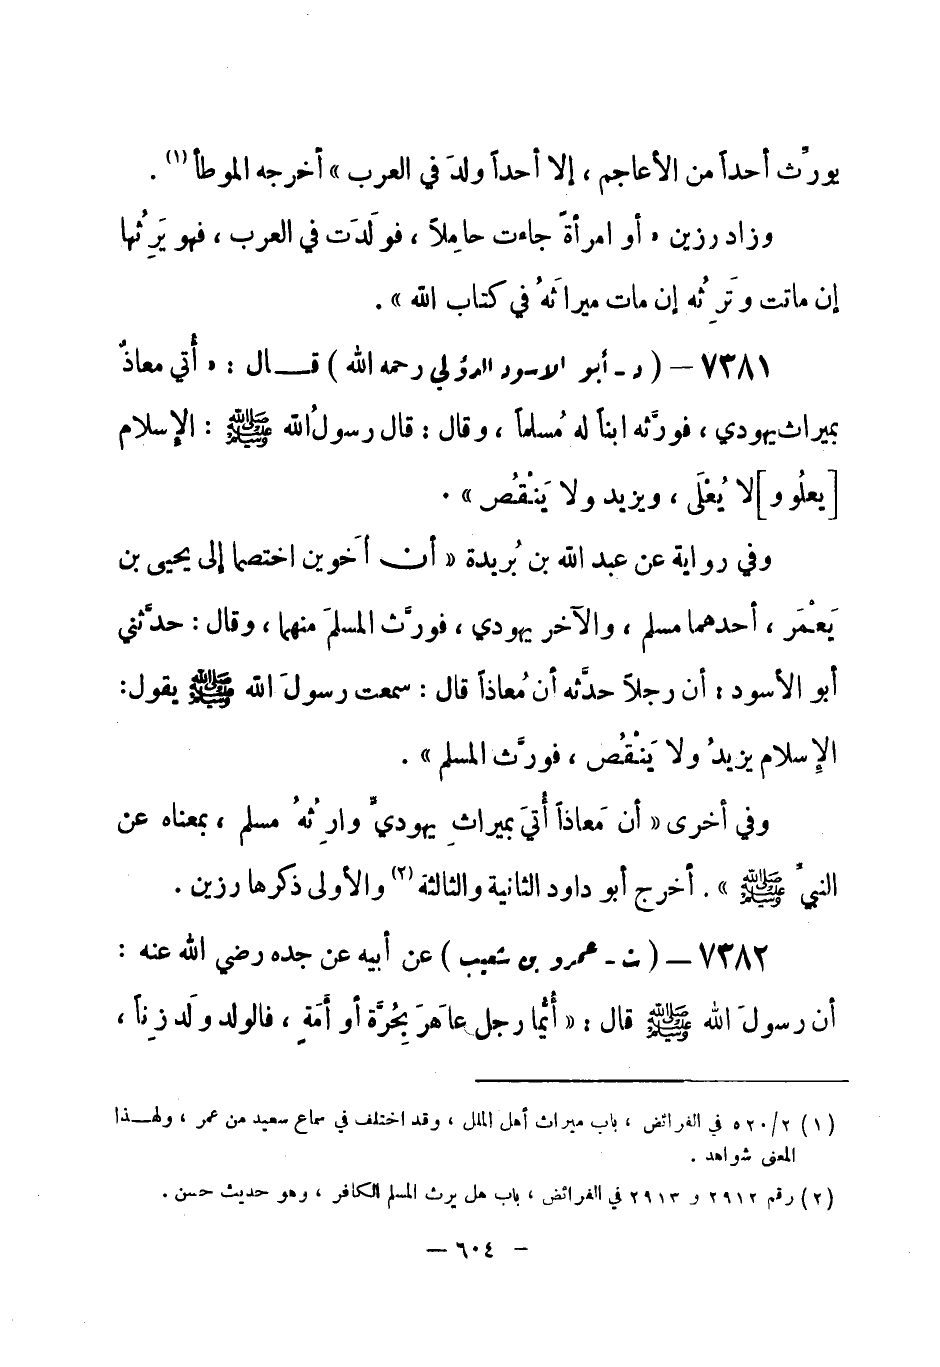 يورِّث أحداً من الأعاجم ، إلا أحداً ولدَ في العرب » أخرجه الموطأ (١) .
وزاد رزين « أو امرأةً جاءت حامِلاً ، فولَدَت في العرب ، فهو يَرِثُها
إن ماتت وتَرِثُه إن مات ميراثَهُ في كتاب الله » .
٧٣٨١ – ( د - أبو الأسود الدؤلي رحمه الله ) قــال : « أُتي معاذٌ
بميراث يهودي ، فورَّثه ابناً له مُسلماً ، وقال : قال رسولُ الله ﷺ : الإسلام
[ يعلُو و ] لا يُعْلَى ، ويزيد ولا يَنْقُص » .
وفي رواية عن عبد الله بن بُريدة « أن أخَوين اختصما إلى يحيى بن
يَعْمَر ، أحدهما مسلم ، والآخر يهودي ، فورَّث المسلمَ منهما ، وقال : حدَّثني
أبو الأسود : أن رجلاً حدَّثه أن مُعاذاً قال : سمعت رسولَ الله ﷺ يقول :
الإسلام يزيدُ ولا يَنْقُص ، فورَّث المسلم » .
وفي أخرى « أن مَعاذاً أُتيَ بميراثِ يهوديٍّ وارِثُهُ مسلم ، بمعناه عن
النبيِّ ﷺ » . أخرج أبو داود الثانية والثالثة (٢) والأولى ذكرها رزين .
٧٣٨٢ – ( ت - عمرو بن شعيب ) عن أبيه عن جده رضي الله عنه :
أن رسولَ الله ﷺ قال : « أيُّما رجل عاهَرَ بِحُرَّة أو أَمَةٍ ، فالولد ولَد زِناً ،
(١) ٥٢٠/٢ في الفرائض ، باب ميراث أهل الملل ، وقد اختلف في سماع سعيد من عمر ، ولهــذا
المعنى شواهد .
(٢) رقم ٢٩١٢ و ٢٩١٣ في الفرائض ، باب هل يرث المسلم الكافر ، وهو حديث حسن .
– ٦٠٤ –